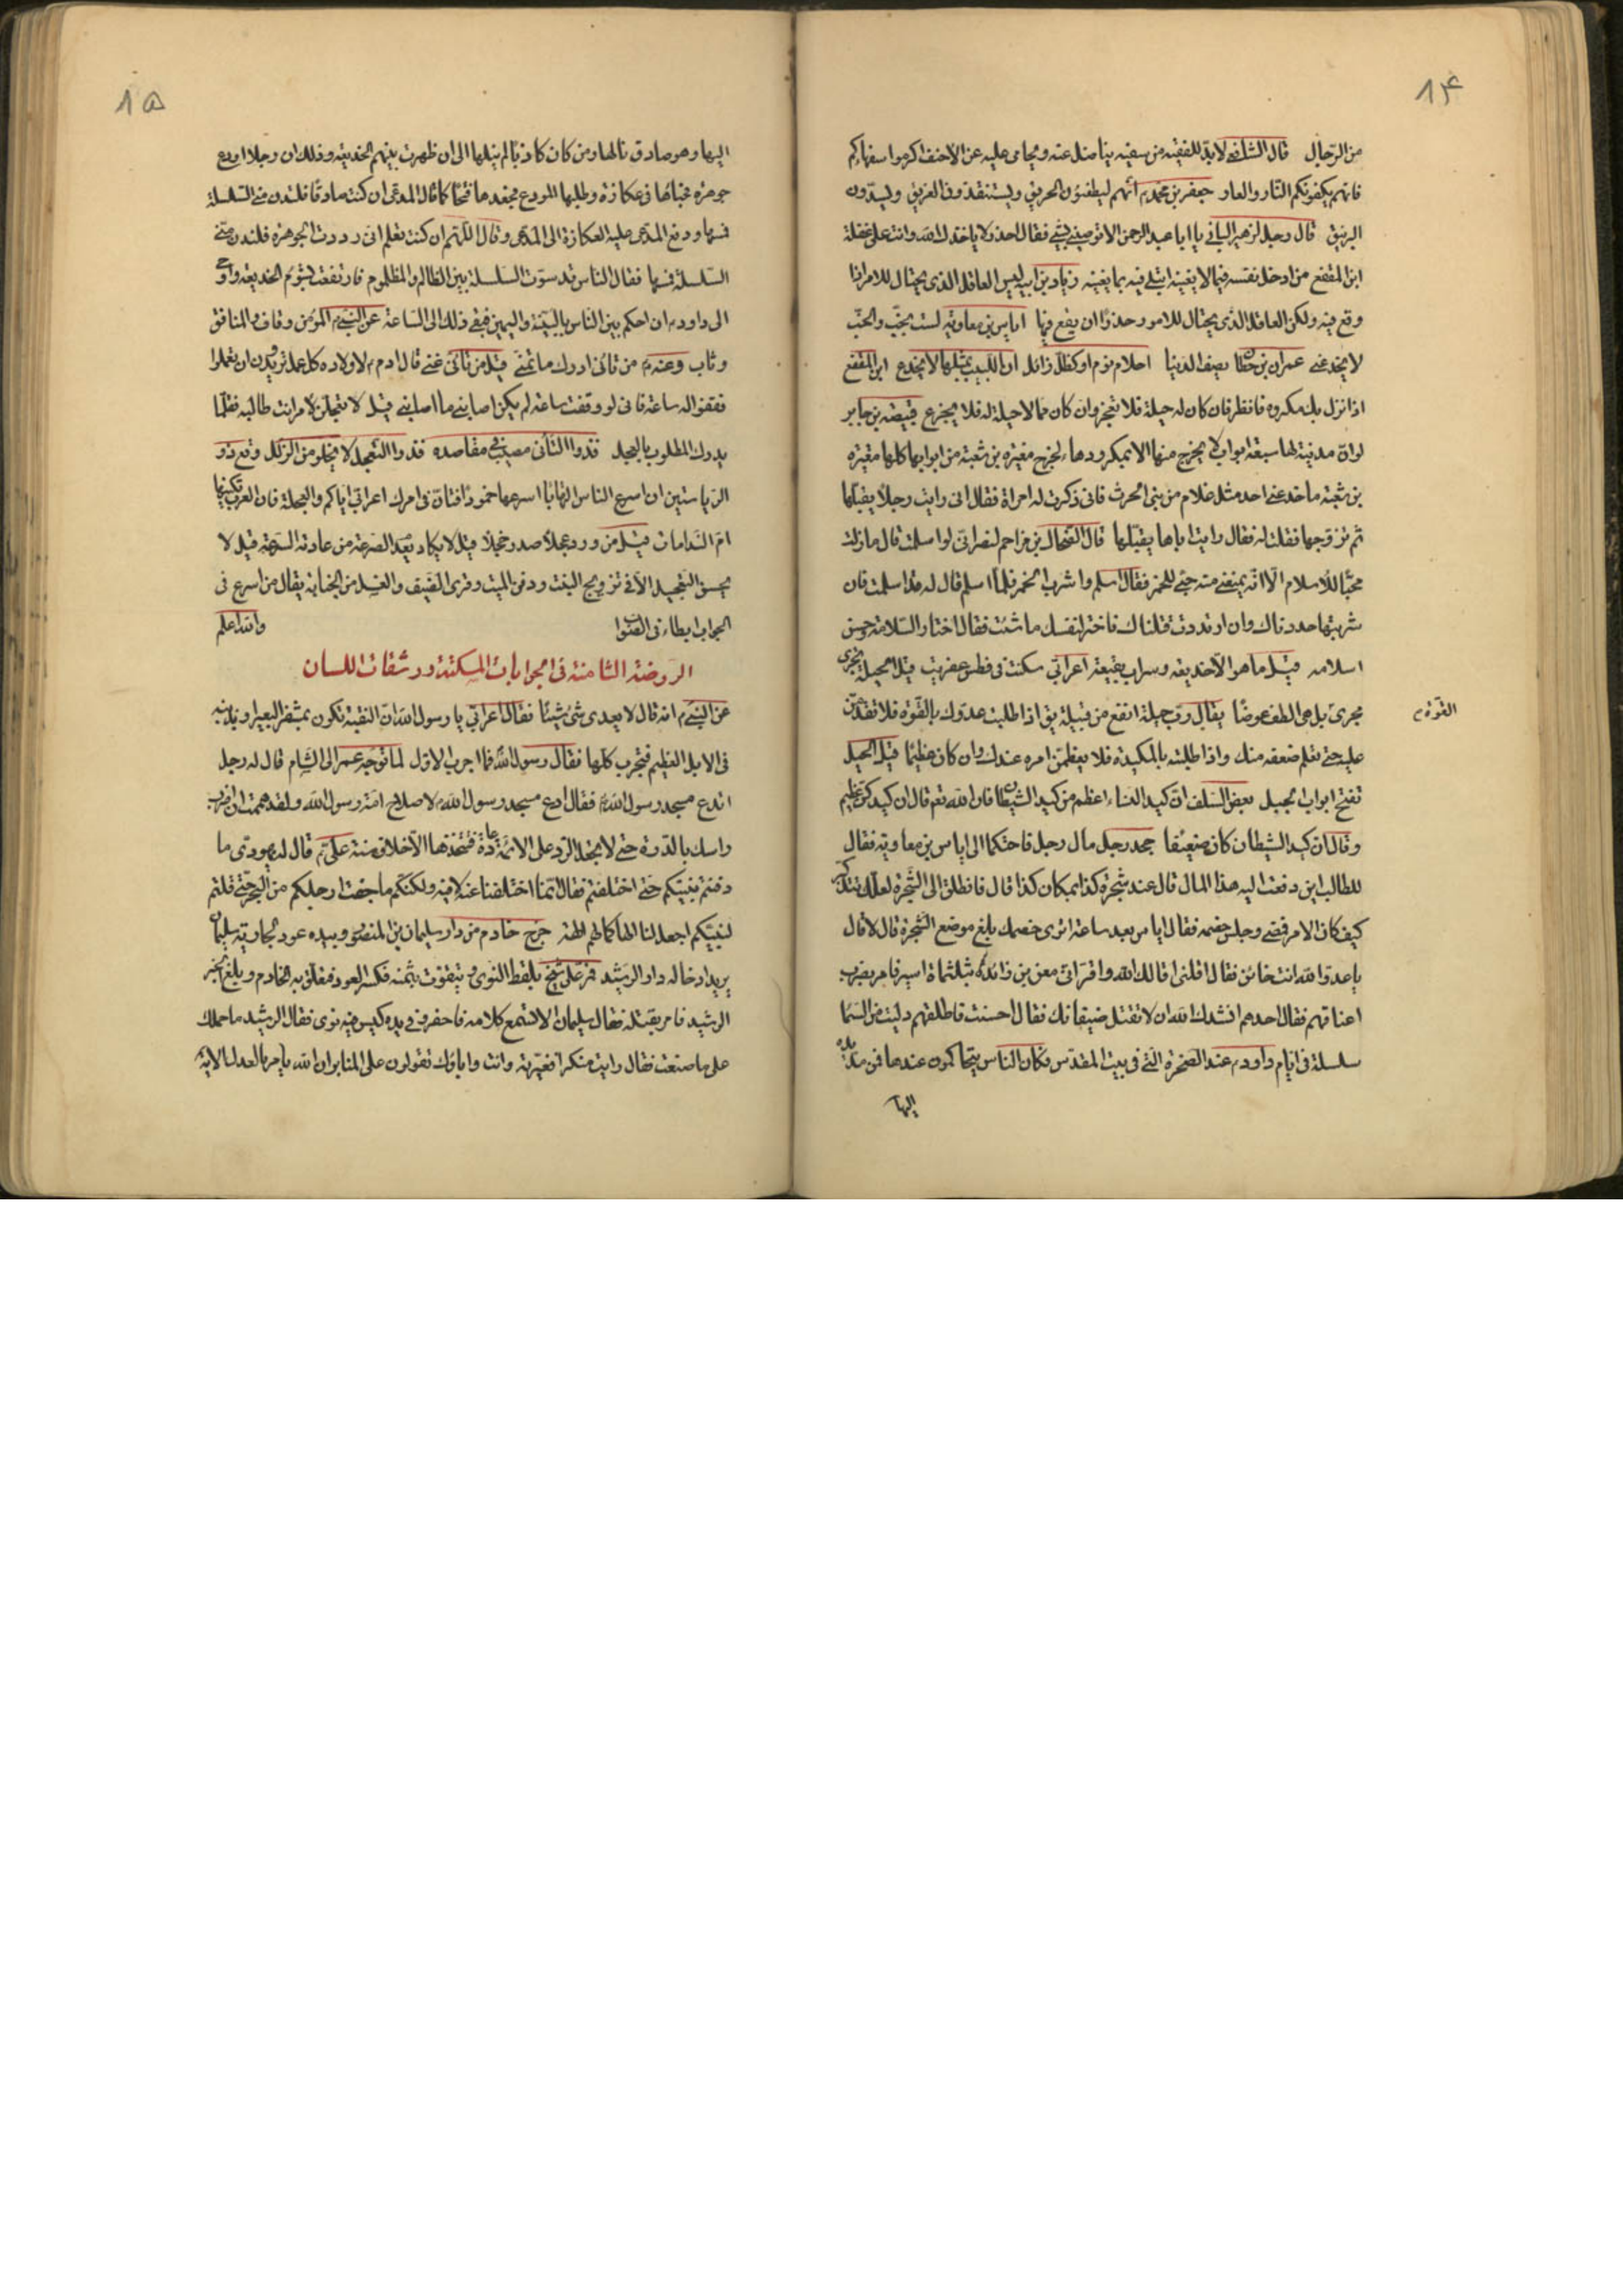 ١۴
من الرجال قال الشافعى لا بد للفقيه من سفيه يناضل عنه ويحامى عليه عن الاحنف اكرموا سفهاءكم
فانهم يكفونكم النار والعار جعفر بن محمد م انهم ليطفئون الحريق ويستنقذون الغريق ويسدون
البثق قال رجل لزهير البابى يا ابا عبد الرحمن الا توصينى بشئ فقال احذر لا ياخذك الله وانت على غفلة
ابن المقفع من ادخل نفسه فيما لا يعنيه ابتلى فيه بما يعنيه زياد بن ابيه ليس العاقل الذى يحتال للامر اذا
وقع فيه ولكن العاقل الذى يحتال للامور حذرا ان يقع فيها اياس بن معاوية لست بخب والخب
لا يخدعنى عمران بن حطان يصف الدنيا احلام نوم او كظل زائل ان اللبيب بمثلها لا يخدع ابن المقفع
اذا نزل بك مكروه فانظر فان كان له حيلة فلا تعجز وان كان مما لا حيلة له فلا تجزع قبيصة بن جابر
لو ان مدينة لها سبعة ابواب لا يخرج منها الا بمكر ودهاء لخرج مغيرة بن شعبة من ابوابها كلها مغيرة
بن شعبة ما خدعنى احد مثل غلام من بنى الحرث فانى ذكرت له امراة فقال انى رايت رجلا يقبلها
ثم تزوجها فقلت له فقال رايت اباها يقبلها قال الضحاك بن مزاحم لنصرانى لو اسلمت قال ما زلت
محبا للاسلام الا انه يمنعنى منه حبى للخمر فقال اسلم واشرب الخمر فلما اسلم قال له قد اسلمت فان
شربتها حددناك وان ارتددت قتلناك فاختر لنفسك ما شئت فقال اختار السلامة وحسن
اسلامه قيل ما هو الا خديعة وسراب بقيعة اعرابى سكنت فى فطن عفريت قيل الحيلة تجرى
مجرى بل هى الطف عوضا يقال رب حيلة انفع من قبيلة يق اذا طلبت عدوك بالقوة فلا تقدمن
القوة
عليه حتى تعلم ضعفه منك واذا طلبته بالمكيدة فلا يعظمن امره عندك وان كان عظيما قيل الحيل
تفتح ابواب بعض السلف ان كيد النساء اعظم من كيد الشيطان فان الله تعم قال ان كيدكن عظيم
وقال ان كيد الشيطان كان ضعيفا جحد رجل مال رجل فاحتكما الى اياس بن معاوية فقال
للطالب اين دفعت اليه هذا المال قال عند شجرة كذا بمكان كذا قال فانطلق الى الشجرة لعلك تتذكر
كيف كان الامر فمضى وجلس خصمه فقال اياس بعد ساعة اترى خصمك بلغ موضع الشجرة قال لا قال
يا عدو الله انت خائن فقال اقلنى اقالك الله واقر اتى معن بن زائدة بثلثماة اسير فامر بضرب
اعناقهم فقال احدهم انشدك الله ان لا تقتل ضيفانك فقال احسنت فاطلقهم دليت من السما
سلسلة فى ايام داود م عند الصخرة التى فى بيت المقدس فكان الناس يتحاكمون عندها فمن مد يده
اليها
١۵
اليها وهو صادق نالها ومن كان كاذبا لم ينلها الى ان ظهرت بينهم الخديعة وذلك ان رجلا اودع
جوهرة فخباها فى عكازة وطلبها المودع فجحدها فتحاكما فقال المدعى ان كنت صادقا فلتدن منى السلسلة
فمسها ودفع المدعى عليه العكازة الى المدعى وقال اللهم ان كنت تعلم انى رددت الجوهرة فلتدن منى
السلسلة فمسها فقال الناس قد سوت السلسلة بين الظالم والمظلوم فارتفعت بشؤم الخديعة واوحى
الى داود م ان احكم بين الناس بالبينة واليمين فبقى ذلك الى الساعة عن النبى م المؤمن وقاف والمنافق
وثاب وعنه م من تانى ادرك ما تمنى قيل من تانى غنى قال ادم م لاولاده كل عمل تريدون ان تعملوا
فقفوا له ساعة فانى لو وقفت ساعة لم يكن اصابنى ما اصابنى قيل لا تعجلن لامر انت طالبه فقلما
يدرك المطلوب بالعجل فذو التانى مصيب فى مقاصده فذو التعجل لا يخلو من الزلل وقع ذو
الرياستين ان اسرع الناس التهابا اسرعها خمودا فتان فى امرك اعرابى اياكم والعجلة فان العرب تكنيها
ام الندامات قيل من ورد عجلا صدر خجلا قيل لا يكاد يعدم الصرعة من عادته السرعة قيل لا
يحسن التعجيل الا فى تزويج البنت ودفن الميت وقرى الضيف والغسل من الجنابة يقال من اسرع فى
الجواب ابطاء فى الصواب والله اعلم
الروضة الثامنة فى الجوابات المسكتة ورشقات اللسان
عن النبى م انه قال لا يعدى شئ شيئا فقال اعرابى يا رسول الله ان النقبة تكون بمشفر البعير او بذنبه
فى الابل العظيم فتجرب كلها فقال رسول الله فما اجرب الاول لما توجه عمر الى الشام قال له رجل
اتدع مسجد رسول الله فقال ادع مسجد رسول الله لاصلاح امة رسول الله ولقد هممت ان اضرب
راسك بالدرة حتى لا تجعل الرد على الائمة عادة فتتخذها الاخلاق سنة على م قال له يهودى ما
دفنتم نبيكم حتى اختلفتم فقال انما اختلفنا عنه لا فيه ولكنكم ما جفت ارجلكم من البحر حتى قلتم
لنبيكم اجعل لنا الها كما لهم الهة خرج خادم من دار سليمان بن المنصور وبيده عود لجارية سليمان
يريد ادخاله دار الرشيد فمر على شيخ يلقط النوى ويتقوت بثمنه فكسر العود فتعلق به الخادم وبلغ الخبر
الرشيد فامر بقتله فقال سليمان الا تسمع كلامه فاحضر وفى يده كيس فيه نوى فقال الرشيد ما حملك
على ما صنعت فقال رايت منكرا فغيرته وانت واباؤك تقولون على المنابر ان الله يامر بالعدل الاية